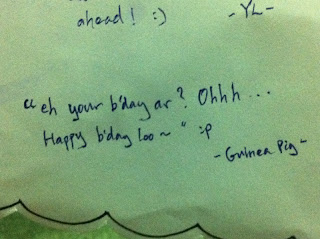 ahead! :) -YL-
"eh your b'day ar? Ohhh...
Happy b'day loo~" :p
-Guinea Pig-